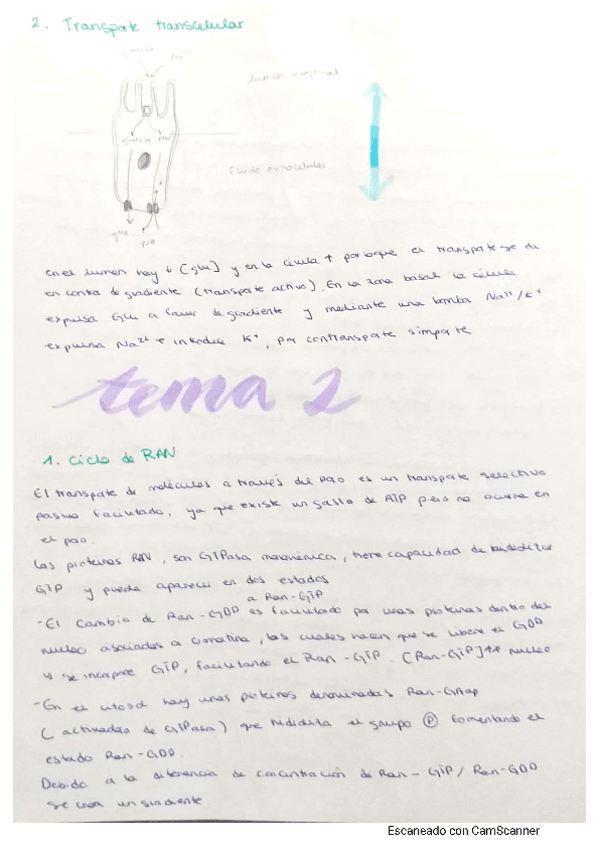 2. Transporte transcelular
glucosa Na⁺
lumen intestinal
glucosa Na⁺
Fluido extracelular
glu
en el lumen hay ↓ [glu] y en la célula ↑ por lo que el transporte se da
en contra de gradiente (transporte activo). En la zona basal la célula
expulsa Glu a favor de gradiente y mediante una bomba Na²⁺/K⁺
expulsa Na²⁺ e introduce K⁺, por contransporte simporte
tema 2
1. Ciclo de RAN
El transporte de moléculas a través del poro es un transporte selectivo
pasivo facilitado, ya que existe un gasto de ATP pero no ocurre en
el poro.
Las proteínas RAN, son GTPasa monomérica, tiene capacidad de hidrolizar
GTP y puede aparecer en dos estados
a Ran-GTP
-El cambio de Ran-GDP es facilitado por unas proteínas dentro del
nucleo asociadas a cromatina, las cuales hacen que se libere el GDP
y se incorpore GTP, facilitando el Ran-GTP. [Ran-GTP]↑↑ nucleo
-En el citosol hay unas proteínas denominadas Ran-Gap
(activadora de GTPasa) que hidroliza el grupo Ⓟ fomentando el
estado Ran-GDP.
Debido a la diferencia de concentración de Ran-GTP/Ran-GDP
se crea un gradiente.
Escaneado con CamScanner